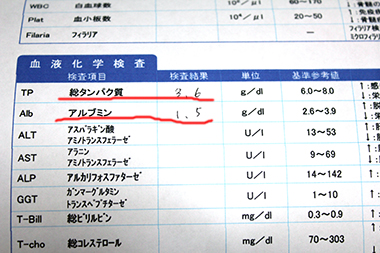 WBC 白血球数 10²／μl 60～170
Plat 血小板数 10⁴／μl 20～50
Filaria フィラリア
血液化学検査
検査項目 検査結果 単位 基準参考値
TP 総タンパク質 3.6 g／dl 6.0～8.0
Alb アルブミン 1.5 g／dl 2.6～3.9
ALT アスパラギン酸 アミノトランスフェラーゼ U／l 13～53
AST アラニン アミノトランスフェラーゼ U／l 9～69
ALP アルカリフォスファターゼ U／l 14～142
GGT ガンマーグルタミン トランスペプチターゼ U／l 1～10
T-Bill 総ビリルビン mg／dl 0.3～0.9
T-cho 総コレステロール mg／dl 70～303